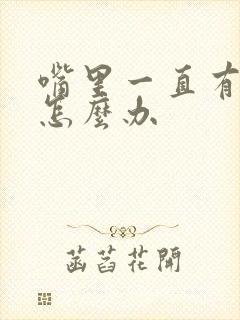 嘴里一直有
怎麼办
菡萏花開